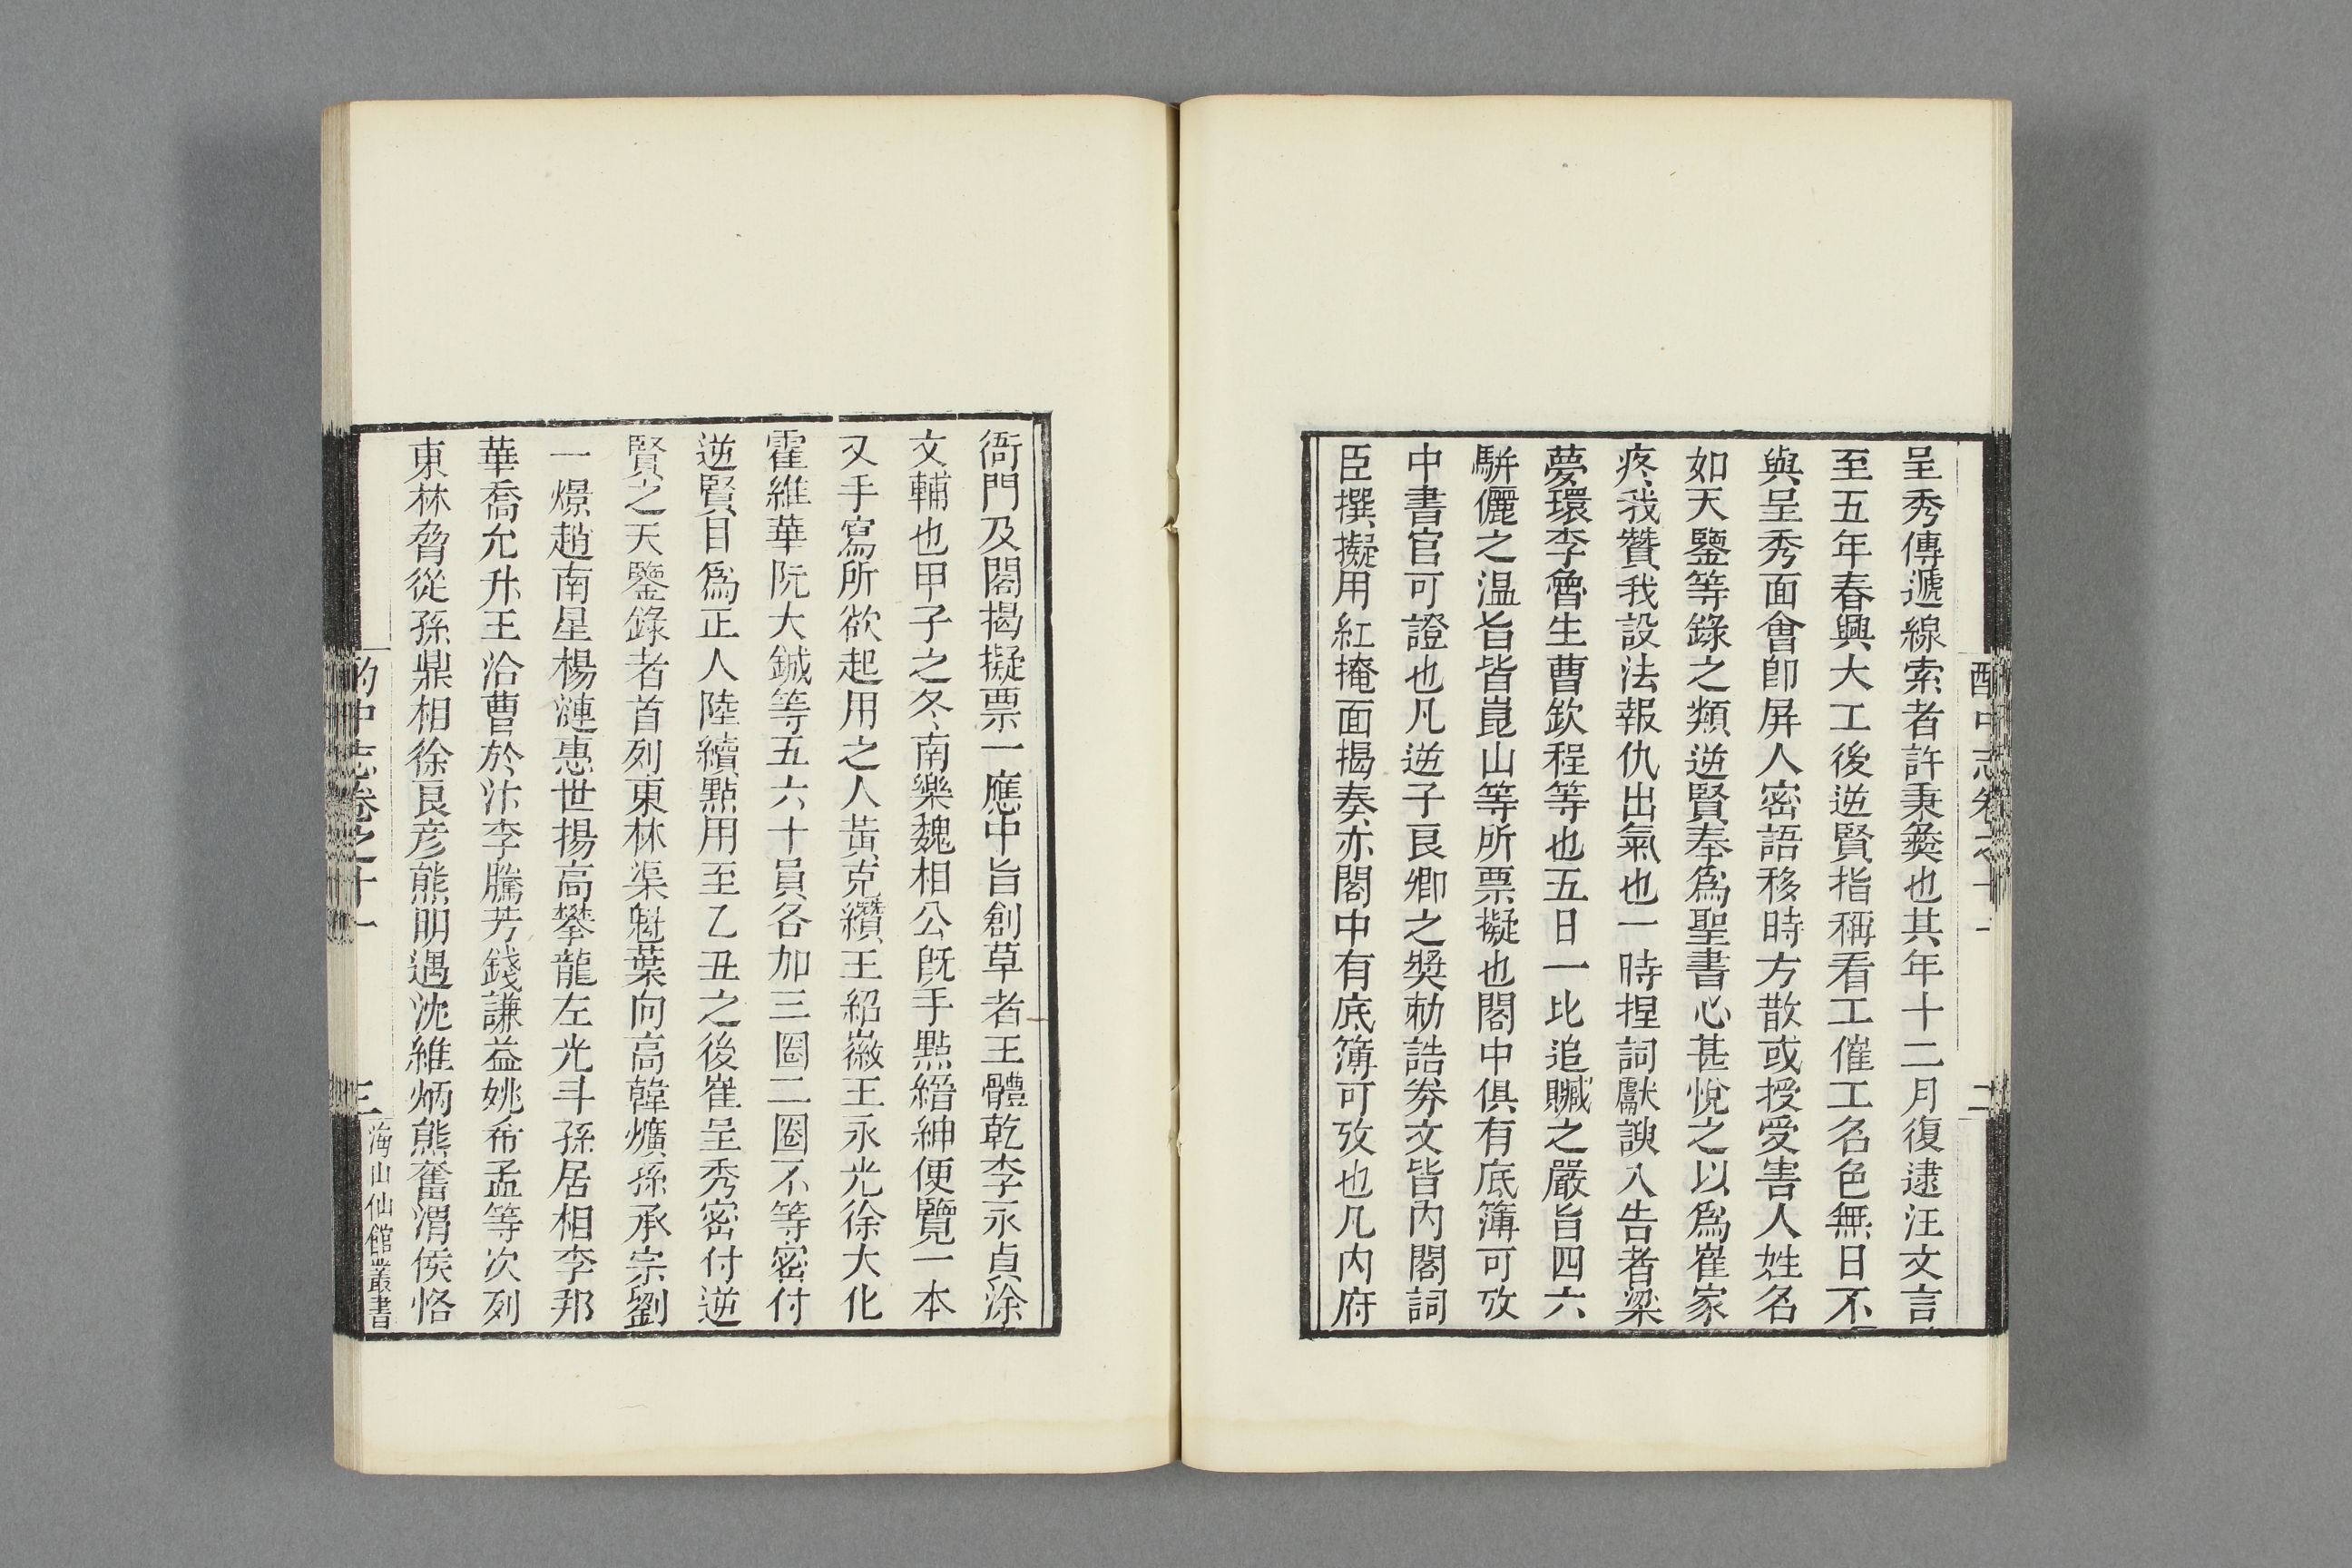 呈秀傳遞線索者許秉彝也其年十二月復逮汪文言
至五年春興大工後逆賢指稱看工催工名色無日不
與呈秀面會卽屏人密語移時方散或授受害人姓名
如天鑒等錄之類逆賢奉爲聖書心甚悅之以爲崔家
疼我贊我設法報仇出氣也一時捏詞獻諛入告者梁
夢環李魯生曹欽程等也五日一比追贓之嚴旨四六
駢儷之温旨皆崑山等所票擬也閣中俱有底簿可攷
中書官可證也凡逆子良卿之獎勅誥券文皆內閣詞
臣撰擬用紅掩面揭奏亦閣中有底簿可攷也凡內府
衙門及閣揭擬票一應中旨創草者王體乾李永貞涂
文輔也甲子之冬南樂魏相公旣手點縉紳便覽一本
又手寫所欲起用之人黃克纘王紹徽王永光徐大化
霍維華阮大鋮等五六十員各加三圈二圈不等密付
逆賢目爲正人陸續點用至乙丑之後崔呈秀密付逆
賢之天鑒錄者首列東林渠魁葉向高韓爌孫承宗劉
一燝趙南星楊漣惠世揚高攀龍左光斗孫居相李邦
華喬允升王洽曹於汴李騰芳錢謙益姚希孟等次列
東林脅從孫鼎相徐良彥熊明遇沈維炳熊奮渭侯恪
酌中志卷之十一
三
海山仙館叢書